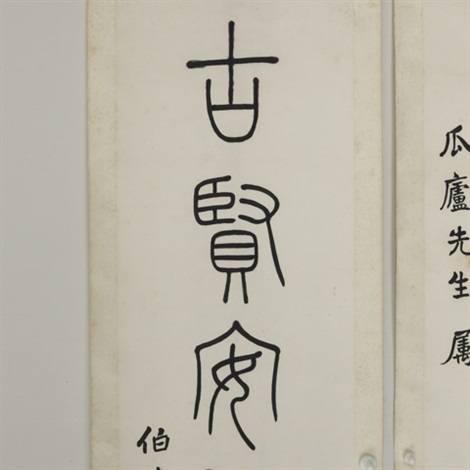 瓜廬先生屬
古賢安
伯